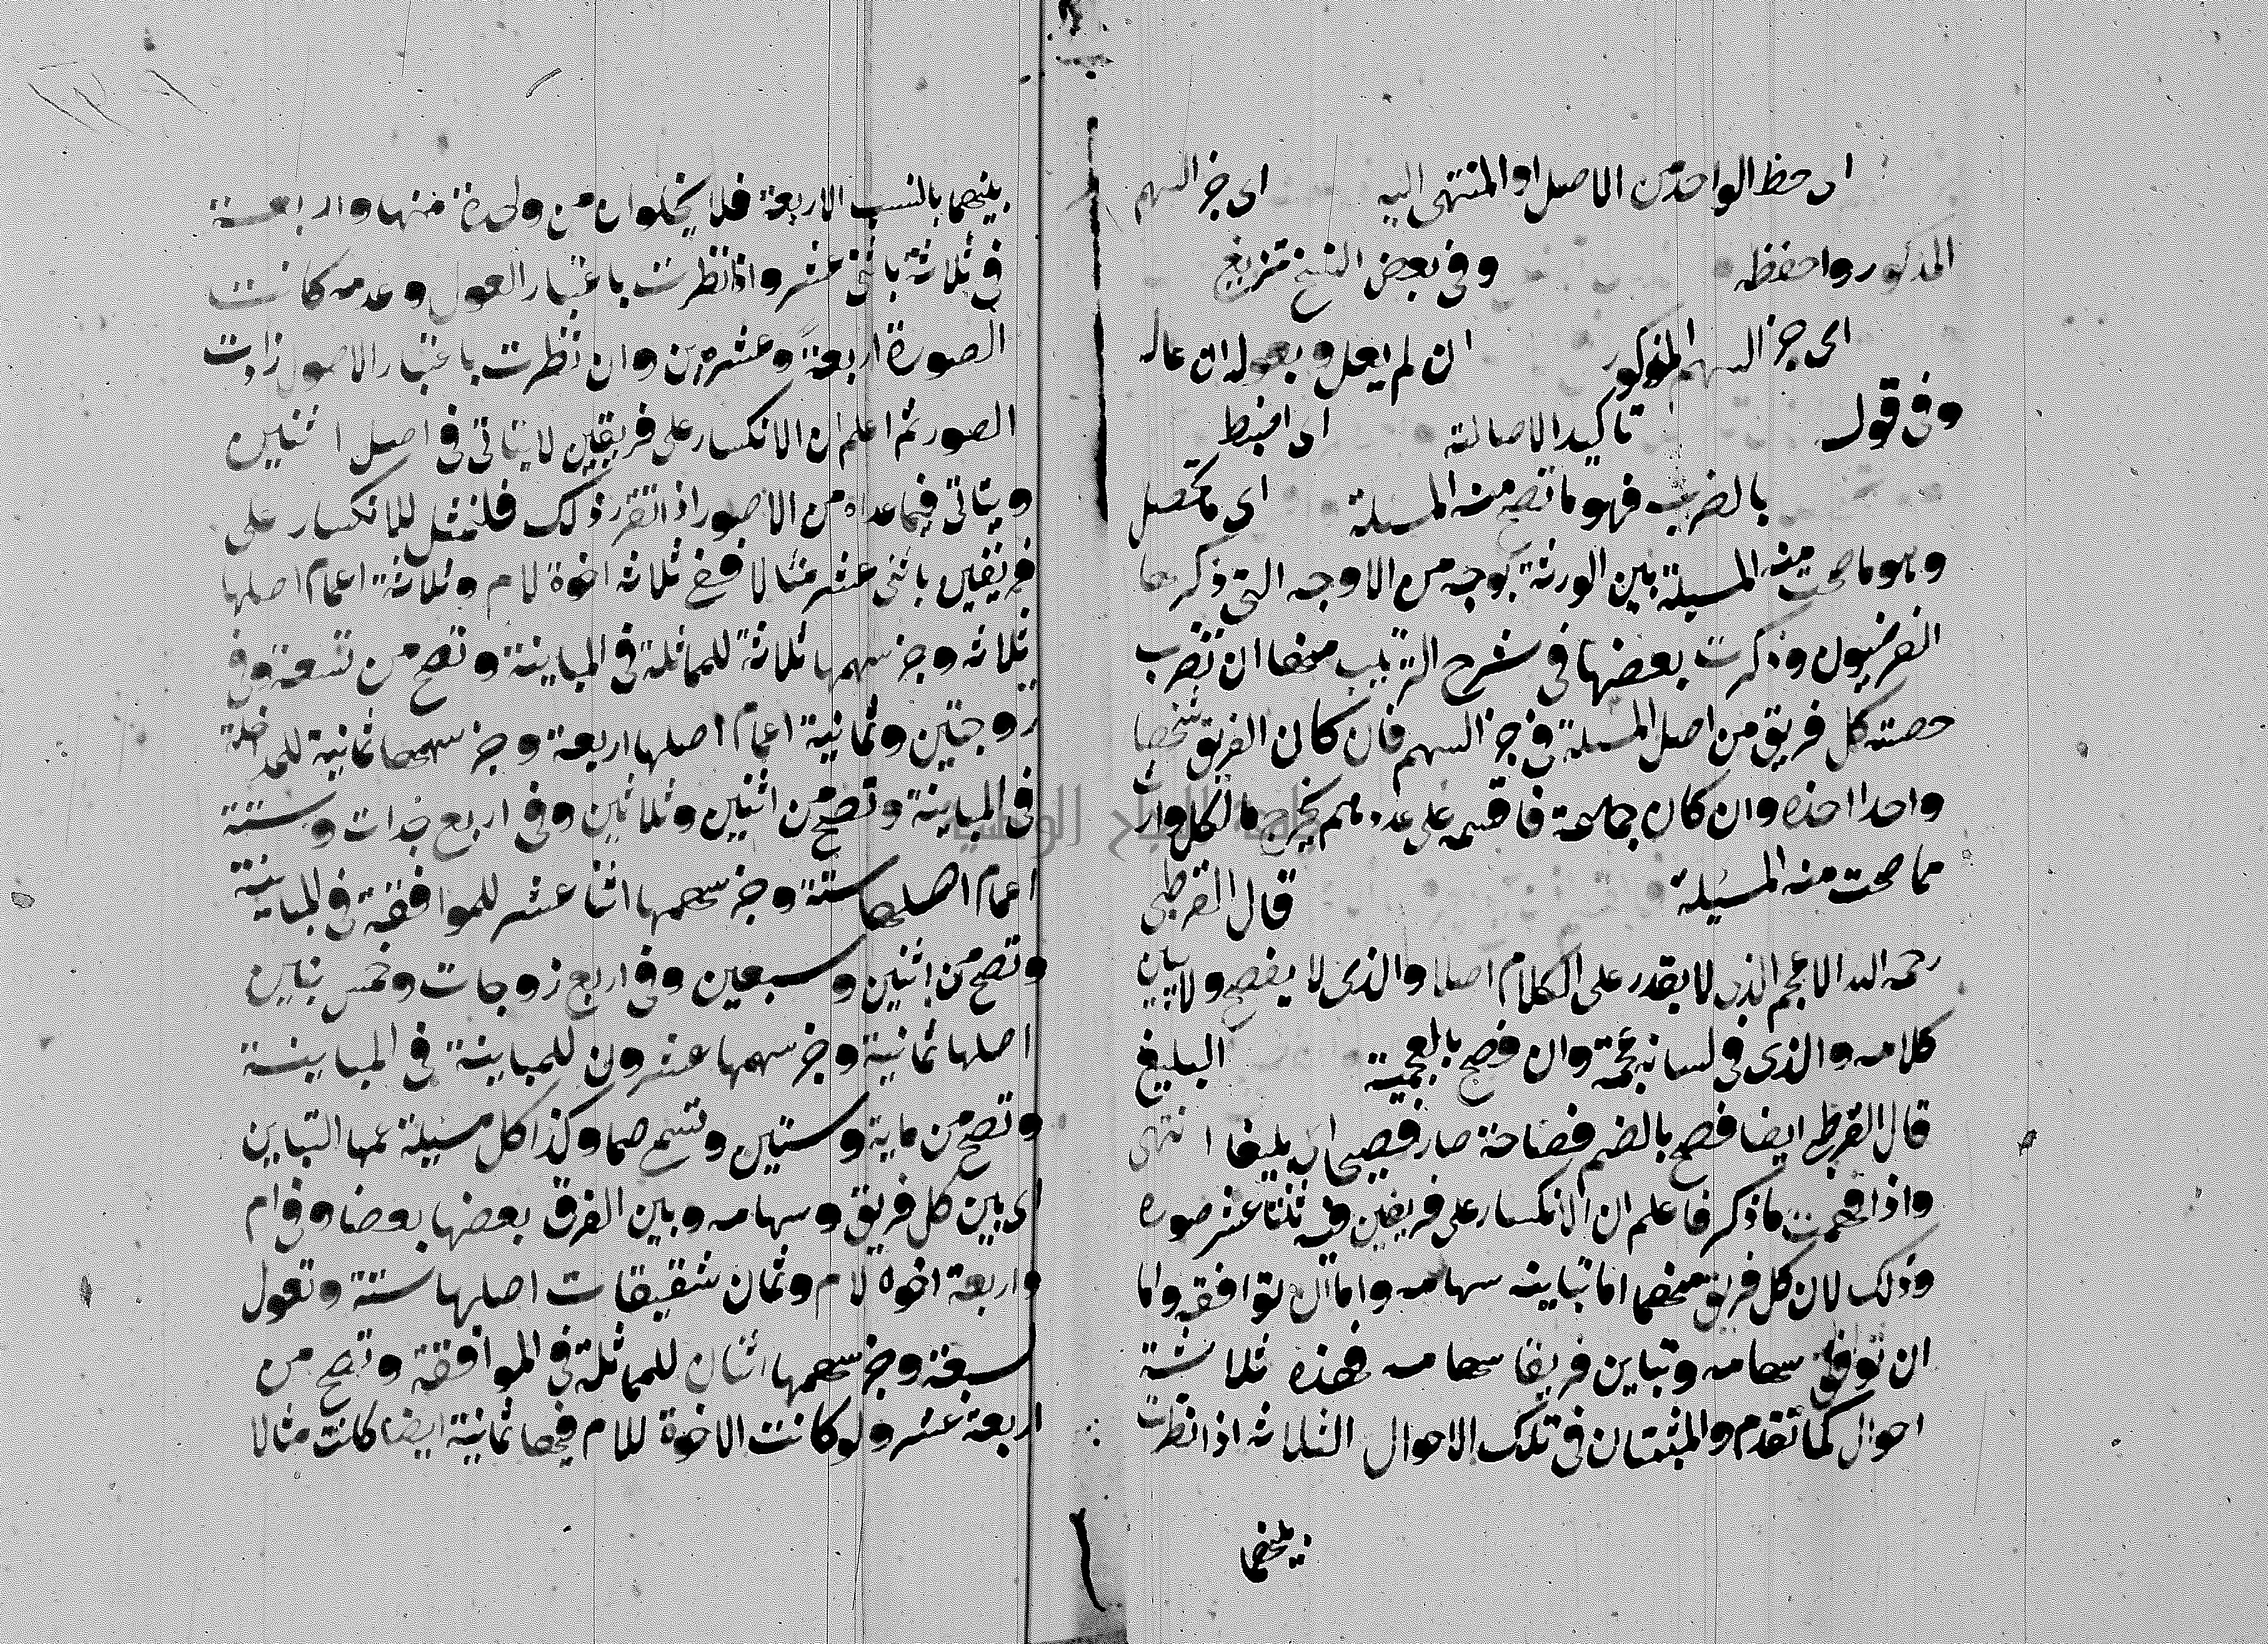 اى حظ الواحد من الاصل او المنتهى اليه اى جز السهم
المذكور واحفظه وفى بعض النسخ تزيغ
اى جز السهم المذكور ان لم يعل وبعوله ان عال
وفى قوله تاكيد الاصالته اى اضبط
بالضرب فهو ما تصح منه المسئلة اى ما تحصل
وهو ما صحت منه المسيلة بين الورثة بوجه من الاوجه التى ذكرها
الفرضيون وذكرت بعضها فى شرح الترتيب منها ان تضرب
حصته كل فريق من اصل المسئلة فى جز السهم فان كان الفريق شخصا
واحدا اخذه وان كان جماعة فاقسمه على عددهم يخرج ما لكل وارث
مما صحت منه المسيلة قال القرطبى
رحمه الله الاعجم الذى لا يقدر على الكلام اصلا والذى لا يفصح ولا يبين
كلامه والذى فى لسانه عجمة وان فصح بالعجمية البليغ
قال القرطبى ايضا فصح بالضم فصاحة صار فصيحا اى بليغا انتهى
واذا فهمت ما ذكر فاعلم ان الانكسار على فريقين فيه ثنتا عشر صوره
وذلك لان كل فريق منهما اما تباينه سهامه واما ان توافقه واما
ان توافق سهامه وتباين فريقا سهامه فهذه ثلاثة
احوال كما تقدم والمثبتان فى تلك الاحوال الثلاثه اذا نظرت
بينهما
بينهما بالنسب الاربعة فلا يخلوان من واحدة منها واربعة
فى ثلاثة باثنى عشر واذا نظرت باعتبار العول وعدمه كانت
الصورة اربعة وعشرين وان نظرت باعتبار الاصول زادت
الصور ثم اعلم ان الانكسار على فريقين لا يتاتى فى اصل اثنين
ويتاتى فيما عداه من الاصول اذا تقرر ذلك فلنمثل للانكسار على
فريقين باثنى عشر مثالا ففى ثلاثه اخوة لام وثلاثة اعمام اصلها
ثلاثه وجز سهمها ثلاثة للمماثلة فى المباينة وتصح من تسعة وفى
زوجتين وثمانية اعمام اصلها اربعة وجز سهمها ثمانية للمداخلة
فى المباينة وتصح من اثنين وثلاثين وفى اربع جدات وستة
اعمام اصلها ستة وجز سهمها اثنا عشر للموافقة فى المباينة
وتصح من اثنين وسبعين وفى اربع زوجات وخمس بنين
اصلها ثمانية وجز سهمها عشرون للمباينة فى المباينة
وتصح من ماية وستين وتسمى صما وكذا كل مسيلة عمها التباين
اى بين كل فريق وسهامه وبين الفرق بعضها بعضا وفى ام
واربعة اخوه لام وثمان شقيقات اصلها ستة وتعول
لسبعة وجز سهمها اثنان للمماثلة فى الموافقة وتصح من
اربعة عشر ولو كانت الاخوة للام فيها ثمانية ايضا كانت مثالا